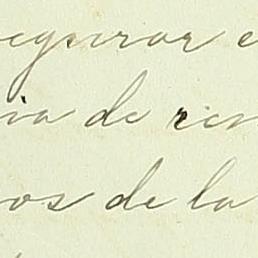 egurar e
ia de ren
os de la